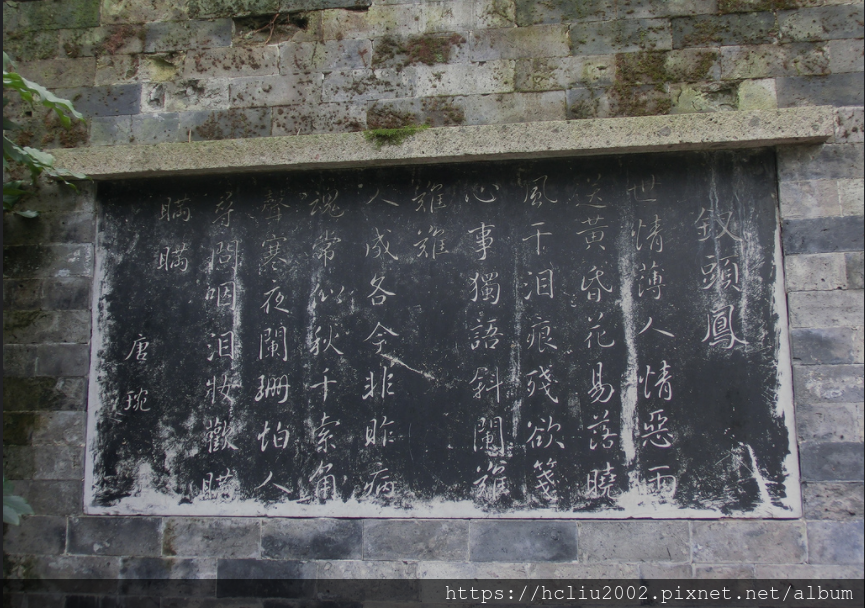 釵頭鳳
世情薄人情惡雨
送黃昏花易落曉
風干泪痕殘欲箋
心事獨語斜闌難
難難
人成各今非昨病
魂常似秋千索角
聲寒夜闌珊怕人
尋問咽泪妝歡瞞
瞞瞞
唐琬
https://hcliu2002.pixnet.net/album